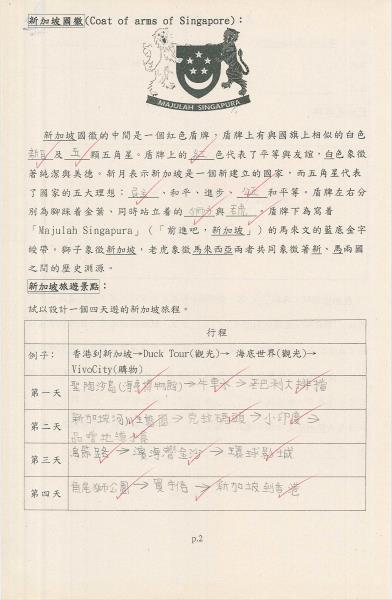 新加坡國徽(Coat of arms of Singapore)：
MAJULAH SINGAPURA
新加坡國徽的中間是一個紅色盾牌，盾牌上有與國旗上相似的白色
新月及五顆五角星。盾牌上的紅色代表了平等與友誼，白色象徵
著純潔與美德。新月表示新加坡是一個新建立的國家，而五角星代表
了國家的五大理想：民主、和平、進步、公正和平等。盾牌左右分
別為腳踩着金葉、同時站立着的獅子與老虎。盾牌下為寫着
「Majulah Singapura」(「前進吧，新加坡」)的馬來文的藍底金字
綬帶。獅子象徵新加坡，老虎象徵馬來西亞兩者共同象徵著新、馬兩國
之間的歷史淵源。
新加坡旅遊景點：
試以設計一個四天遊的新加坡旅程。
行程
例子： 香港到新加坡→Duck Tour(觀光)→ 海底世界(觀光)→
VivoCity(購物)
第一天 聖陶沙島(海事博物館)→牛車水→老巴剎大排檔
第二天 新加坡河川生態園→克拉碼頭→小印度→
品嚐地道美食
第三天 烏節路→濱海灣金沙→環球影城
第四天 魚尾獅公園→買手信→新加坡到香港
p.2